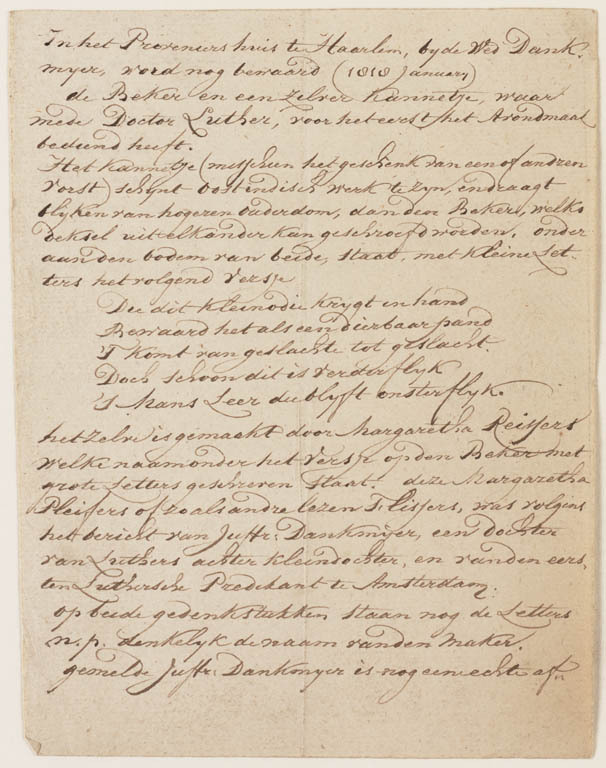 In het Proveniers huis te Haarlem, by de Wed Dank-
myer, word nog bewaard (1818 January)
de Beker en een zelver kannetje, waar
mede Doctor Luther, voor het eerst het Avondmaal
bediend heeft.
Het kannetje (misschien het geschenk van een of andren
vorst) schynt oostindisch werk te zyn, en draagt
blyken van hogeren ouderdom, dan den Beker, welks
deksel uit elkander kan geschroefd worden, onder
aan den bodem van beide, staat, met kleine Let-
ters het volgend versje
Die dit kleinodie krygt in hand
Bewaard het als een dierbaar pand
'T komt van geslachte tot geslacht.
Doch schoon dit is verderflyk
'S Mans Leer die blyft onsterflyk.
het zelve is gemaakt door Margaretha Reissers
welke naam onder het versje op den Beker met
grote Letters geschreven staat. deze Margaretha
Pleissers of zo als andre lezen Flissers, was volgens
het bericht van Juffr: Dankmyer, een dochter
van Luthers achter kleindochter, en van den eers-
ten Luthersche Predikant te Amsterdam.
op beide gedenkstukken staan nog de Letters
n. p. denkelyk de naam van den maker.
gemelde Juffr: Dankmyer is nog een echte af-